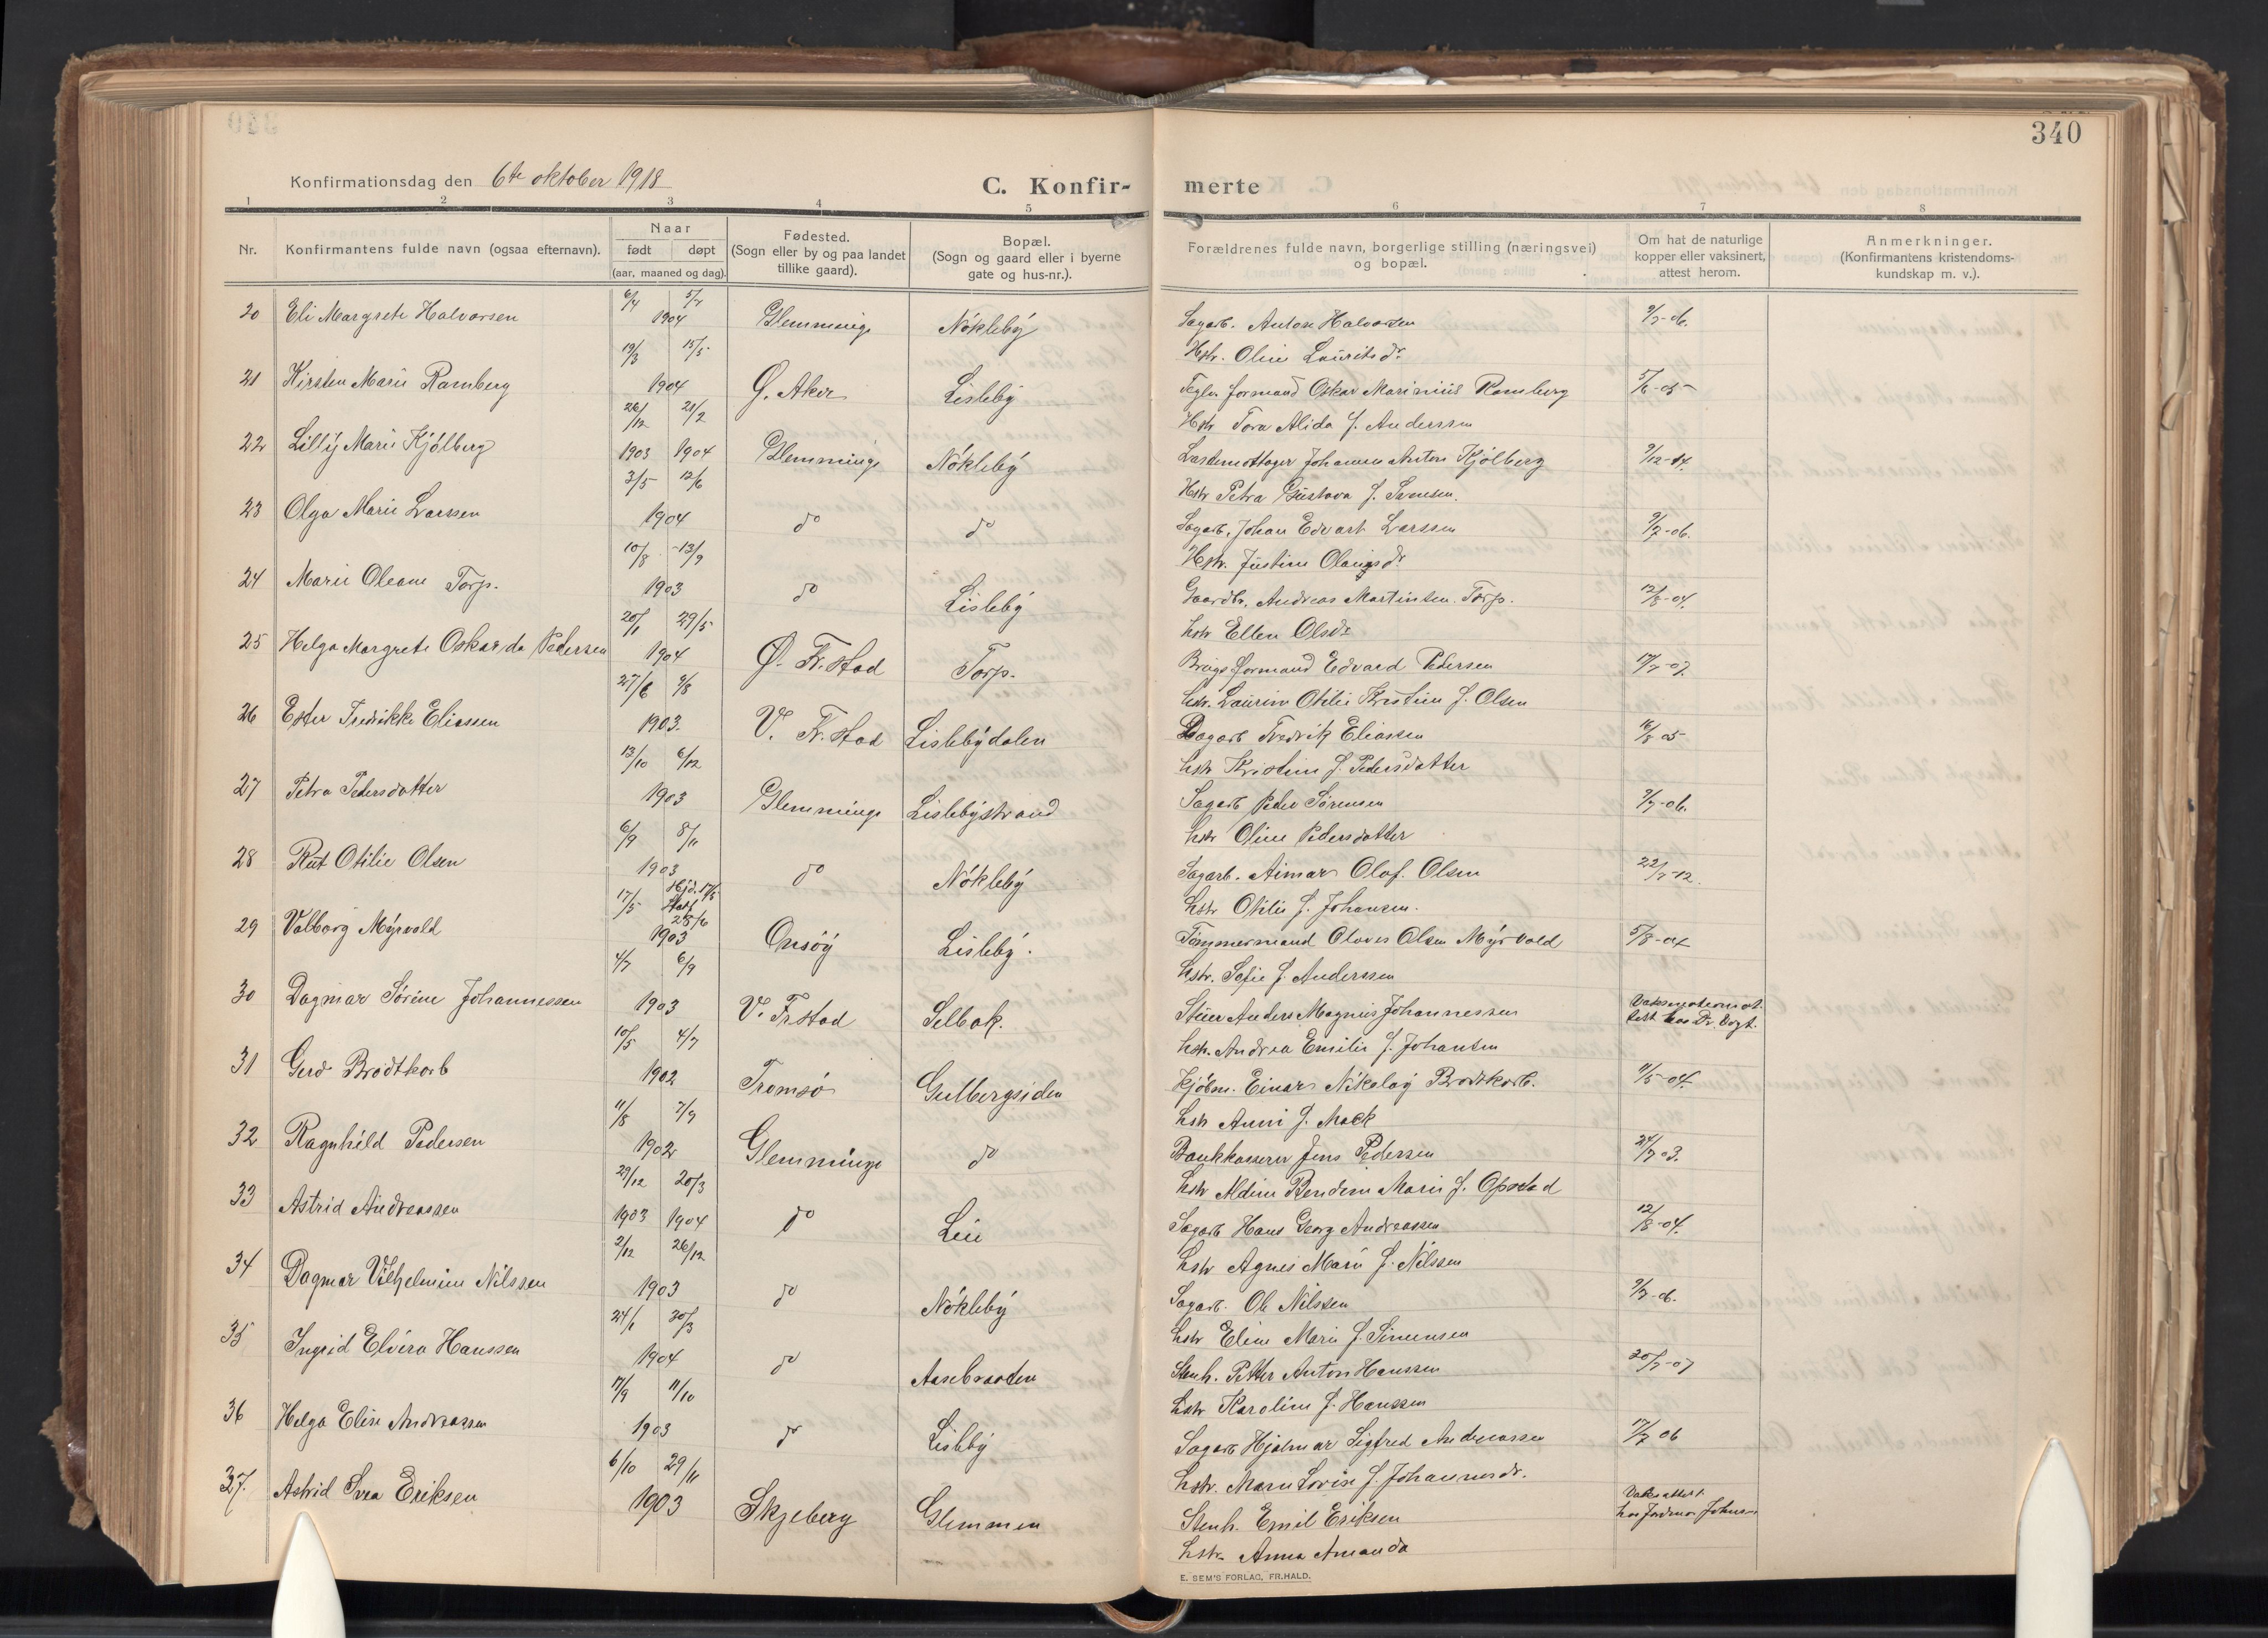 340
Konfirmationsdag den 6te oktober 1918
C. Konfir-
merte
1 2 3 4 5 6 7 8
Nr.
Konfirmantens fulde navn (ogsaa efternavn).
Naar
født døpt
(aar, maaned og dag).
Fødested.
(Sogn eller by og paa landet
tillike gaard).
Bopæl.
(Sogn og gaard eller i byerne
gate og hus-nr.).
Forældrenes fulde navn, borgerlige stilling (næringsvei)
og bopæl.
Om hat de naturlige
kopper eller vaksinert,
attest herom.
Anmerkninger.
(Konfirmantens kristendoms-
kundskap m. v.).
6/4
20 Eli Margrete Halvorsen 1904 Glemminge Nökleby Sagarb. Anton Halvorsen 9/7-06.
19/3 15/5 Hstr. Oline Lauritsdr.
21 Kirsten Marie Ramberg 1904 Ø. Aker Lisleby Teglv. formand Oskar Marinius Ramberg 5/6-05
26/12 21/2 Hstr Tora Alida f. Anderssen
22 Lilly Marie Kjölberg 1903 1904 Glemminge Nökleby Lastemottager Johannes Anton Kjölberg 9/12-04.
3/5 12/6 Hstr Petra Gustava f.
23 Olga Marie Larssen 1904 do do Sagarb. Johan Edvart Larssen 9/7-06.
10/8 13/9 Hstr. Justine Olausdr
24 Marie Oleane Torp. 1903 do Lisleby Gaardbr. Andreas Martinsen Torp. 12/8-04.
20/1 29/5 hstr Ellen Olsdr
25 Helga Margrete Oskarida Pedersen 1904 Ø. Fr.stad Torp. Brugsformand Edvard Pedersen 17/7-07.
27/6 9/8 hstr. Laurine Otilie Kristine f. Olsen
26 Ester Fredrikke Eliassen 1903. V. Fr.stad Lislebydalen Sagarb Fredrik Eliassen 16/8 05
13/10 6/12 hstr Kristine f. Pedersdatter
27 Petra Pedersdatter 1903 Glemminge Lislebystrand Sagarb Peder Sörensen 9/7-06.
6/9 8/11 hstr Oline Pedersdatter
28 Rut Otilie Olsen 1903 do Nökleby Sagarb. Aimar Olaf Olsen 22/7-12.
17/5 Hjd. 17/5 Stadf 28/6 hstr Otilie f. Johansen.
29 Valborg Myrvold 1903 Onsöy Lisleby. Tømmermand Oloves Olsen Myrvold 5/8-04
4/7 6/9 hstr. Sofie f. Anderssen
30 Dagmar Sörine Johannessen 1903 V. Frstad Selbak. Stuer Anders Magnus Johannessen
10/5 4/7 hstr. Andrea Emilie f. Johansen hos Dr. Vogt.
31 Gerd Brodtkorb 1902 Tromsö Gulbergsiden Kjöbm. Einar Nikolay Brodtkorb. 11/5-04.
11/8 7/9 hstr Anni f. Mack
32 Ragnhild Pedersen 1902 Glemminge do Bankkasserer Jens Pedersen 24/7 03.
29/12 20/3 hstr Aldine Bendine Marie f. Opstad
33 Astrid Andreassen 1903 1904 do Lie Sagarb Hans Georg Andreassen 12/8-04.
2/12 26/12 hstr Agnes Marie f. Nilssen
34 Dagmar Vilhelmine Nilssen 1903 do Nökleby Sagarb. Ole Nilssen 9/7-06.
24/1 30/3 hstr Eline Marie f. Simensen
35 Ingrid Elvira Hanssen 1904 do Aasebraaten Stenh. Petter Anton Hanssen 20/7-07
17/9 11/10 hstr Karoline f. Hanssen
36 Helga Elise Andreassen 1903 do Lisleby Sagarb Hjalmar Sigfred Andreassen 17/7 06
6/10 29/11 hstr. Maren Lovise f. Johannesdr.
37. Astrid Svea Eriksen 1903 Skjeberg Glemmen Stenh. Emil Eriksen Vaks attest hos Jordmor Johnsen
hstr. Anna Amanda
E. SEM'S FORLAG, FR.HALD.